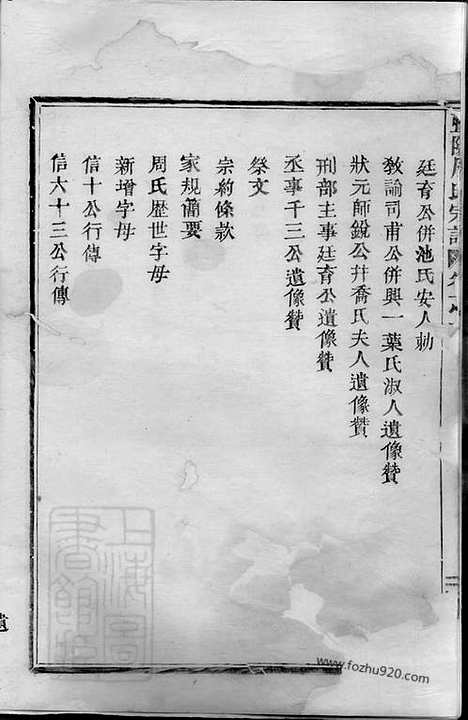 廷育公併池氏安人勅
教諭司甫公併興一葉氏淑人遺像贊
狀元師銳公幷喬氏夫人遺像贊
刑部主事廷育公遺像贊
丞事千三公遺像贊
祭文
宗約條款
家規簡要
周氏歷世字母
新增字母
信十公行傳
信六十三公行傳
周氏宗譜
上海圖書館
遺
www.fozhu920.com